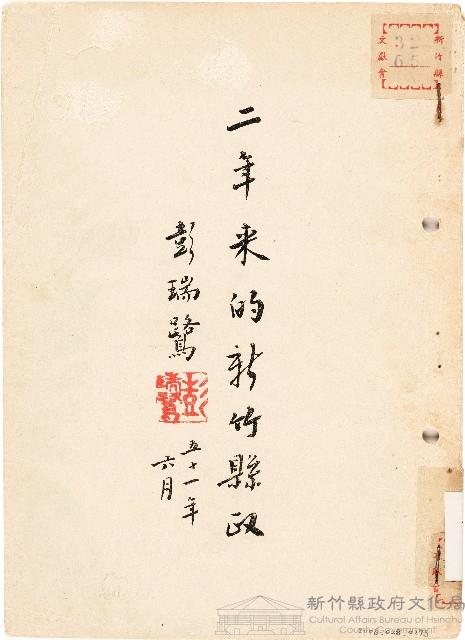 新竹縣
文獻會
32
65
二年来的新竹縣政
彭瑞鷺
五十一年
六月
新竹縣政府文化局
Cultural Affairs Bureau of Hsinchu
County Government